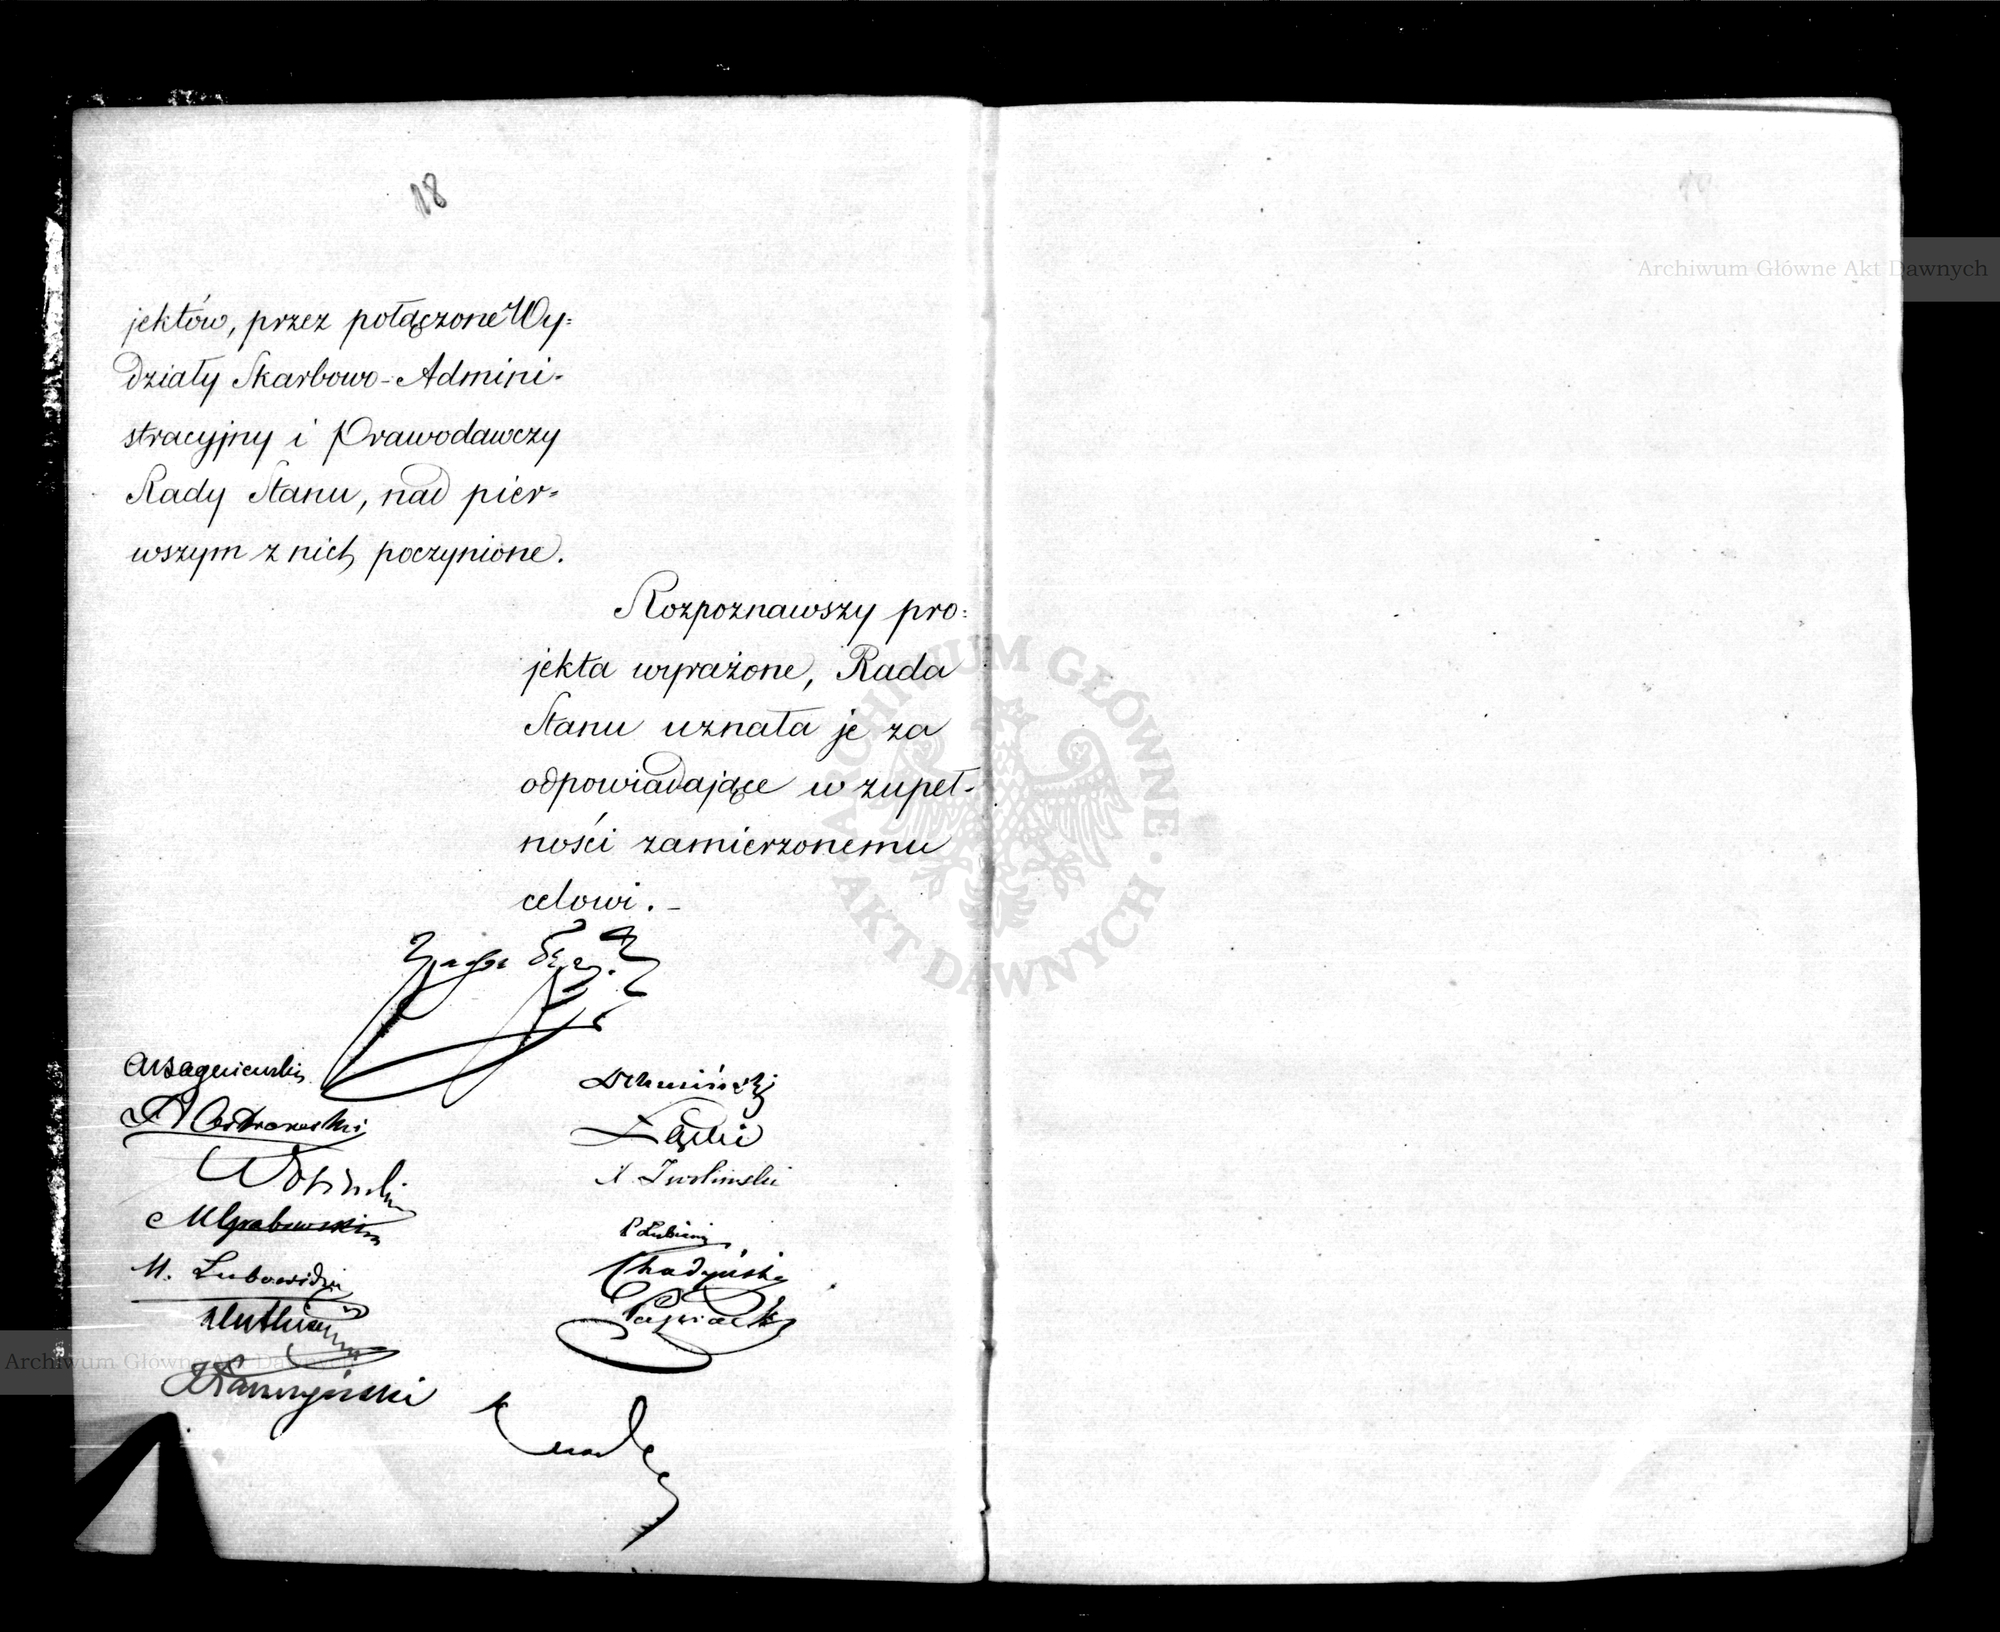 18
jektów, przez połączone Wy=
działy Skarbowo-Admini-
stracyjny i Prawodawczy
Rady Stanu, nad pier=
wszym z nich poczynione.
Rozpoznawszy pro=
jekta wyrażone, Rada
Stanu uznała je za
odpowiadające w zupeł-
ności zamierzonemu
celowi. –
M. Grabowski
M. Lubowidzki
Łącki
P Łubieński
Chądzyński
Archiwum Główne Akt Dawnych
Archiwum Główne Akt Dawnych
ARCHIWUM GŁÓWNE AKT DAWNYCH